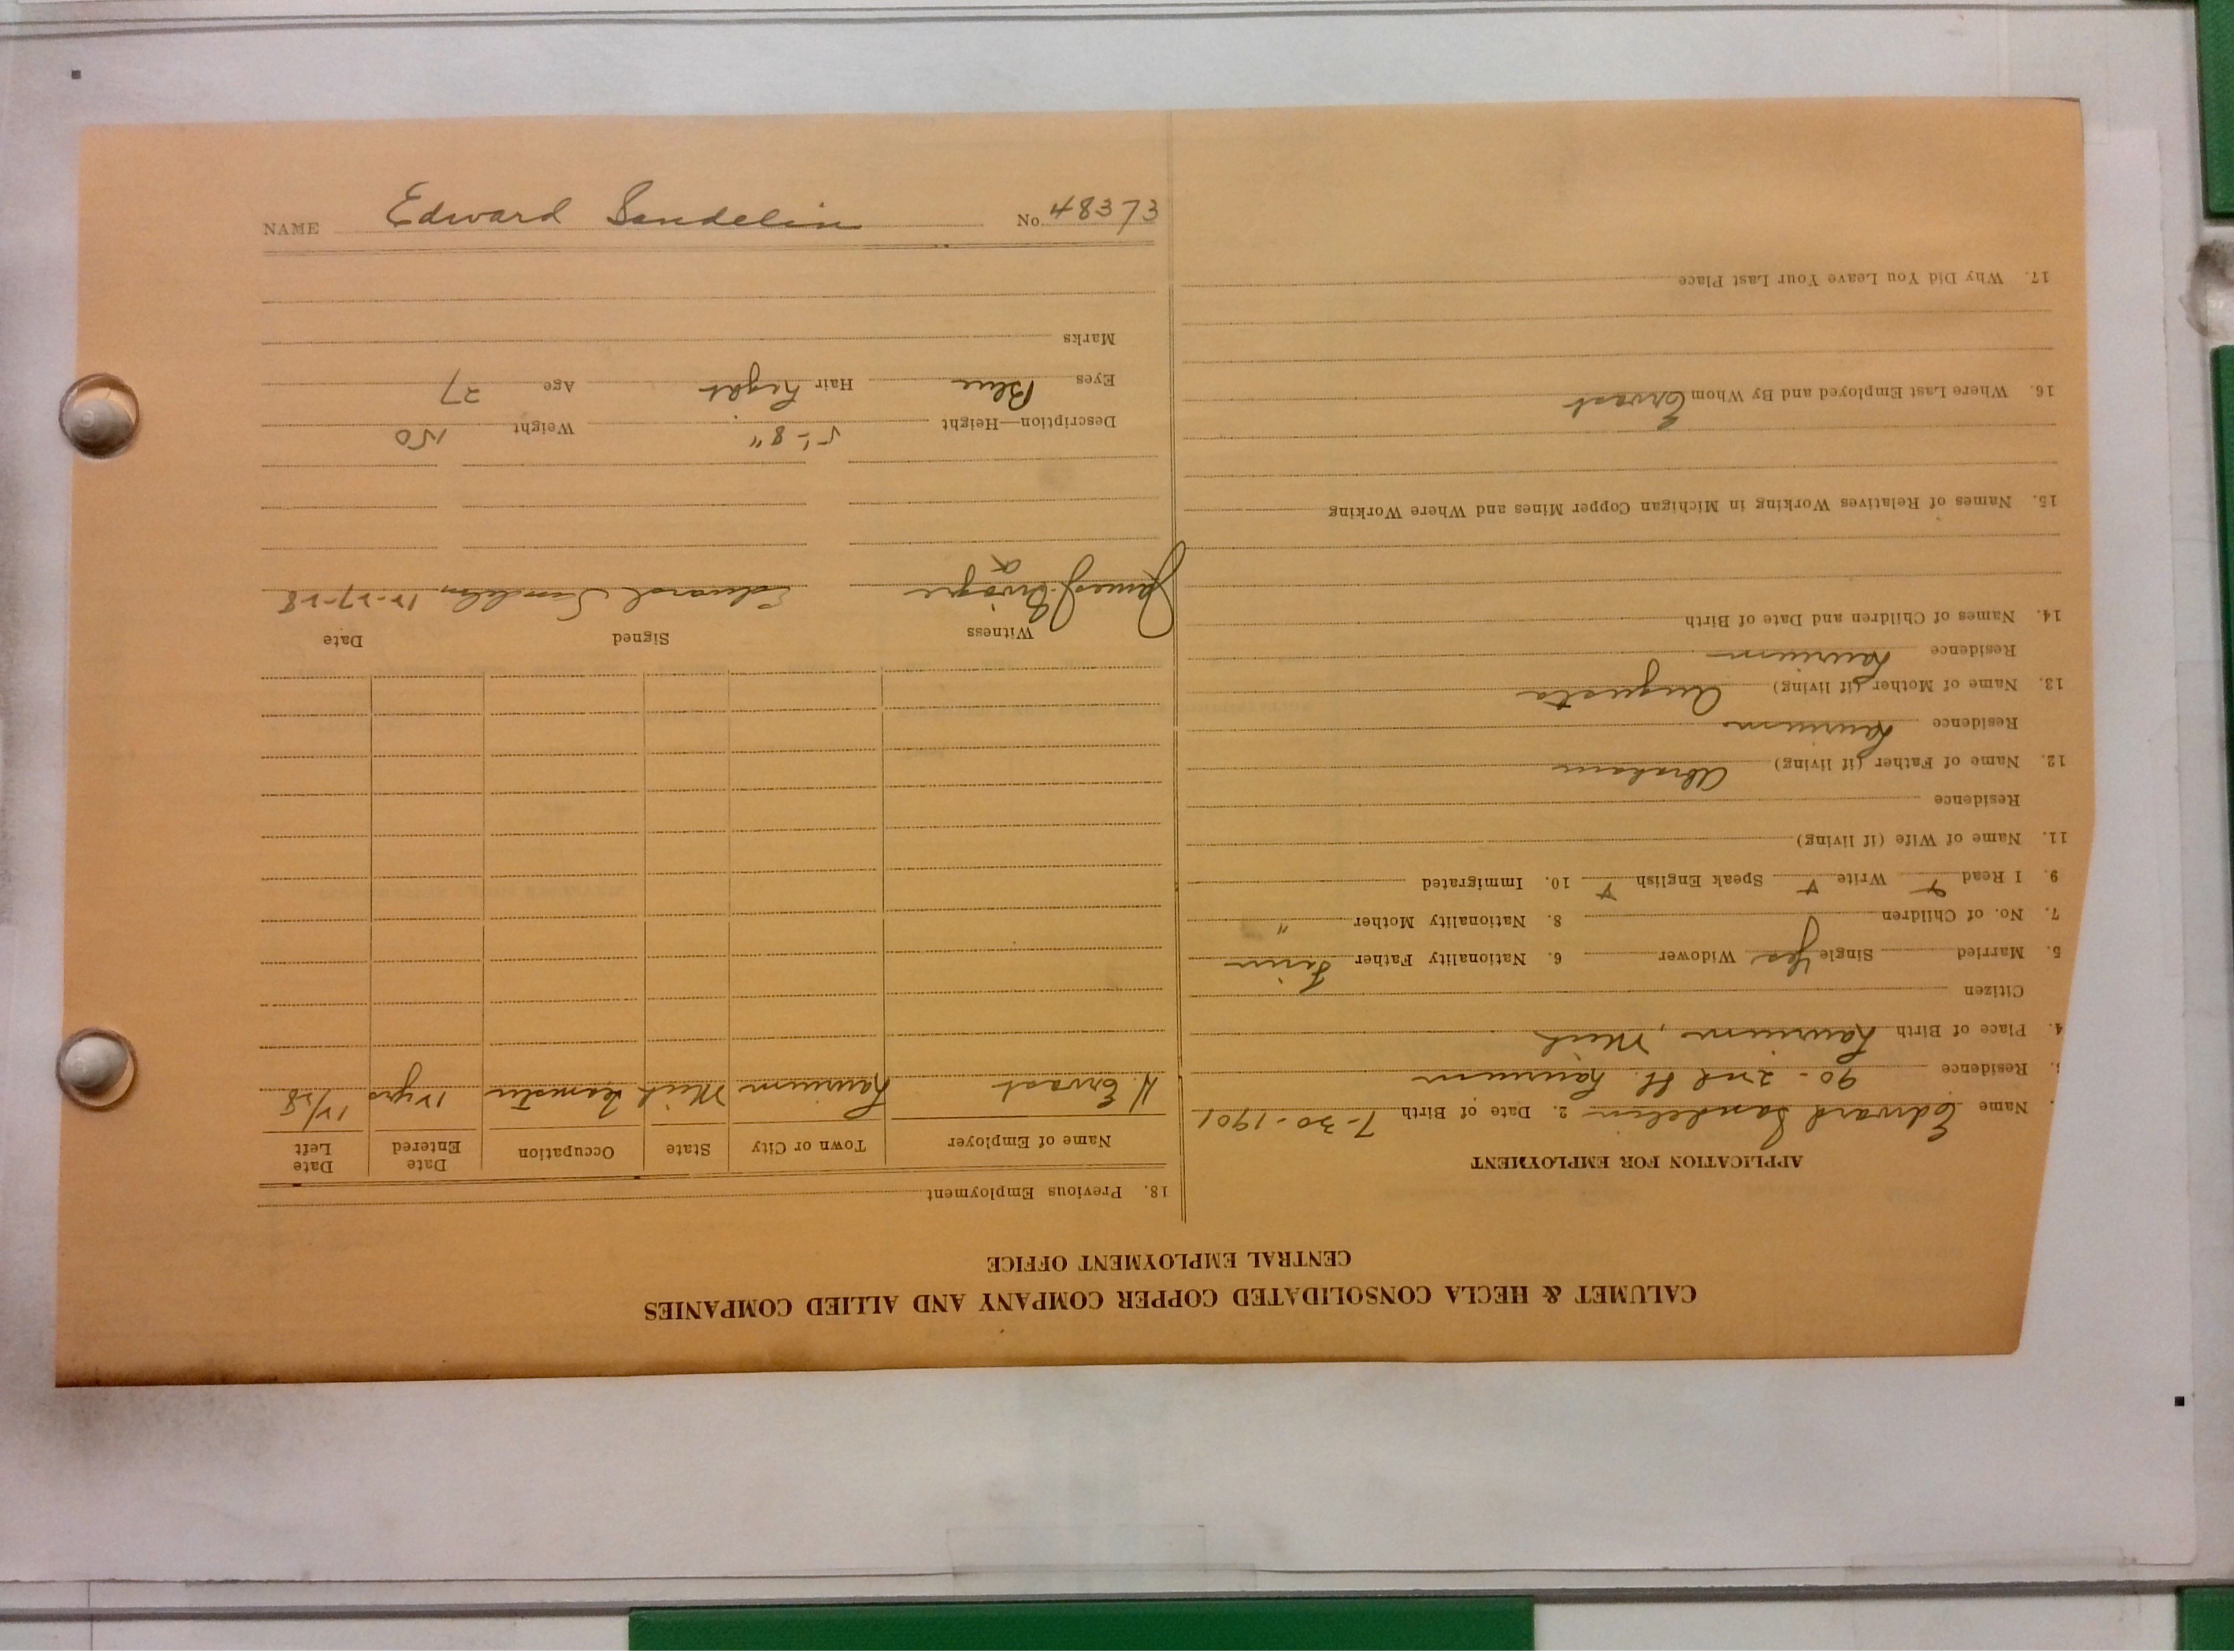 CALUMET & HECLA CONSOLIDATED COPPER COMPANY AND ALLIED COMPANIES
CENTRAL EMPLOYMENT OFFICE
APPLICATION FOR EMPLOYMENT
Name Edward Sandelin 2. Date of Birth 7-30-1901
Residence 90-2nd St. Laurium
4. Place of Birth Laurium, Mich
Citizen
5. Married Single Yes Widower 6. Nationality Father Finn
7. No. of Children 8. Nationality Mother "
9. I Read Write Speak English 10. Immigrated
11. Name of Wife (if living)
Residence
12. Name of Father (if living) Abraham
Residence Laurium
13. Name of Mother (if living) Augusta
Residence Laurium
14. Names of Children and Date of Birth
15. Names of Relatives Working in Michigan Copper Mines and Where Working
16. Where Last Employed and By Whom Ervast
17. Why Did You Leave Your Last Place
18. Previous Employment
Name of Employer Town or City State Occupation Date Entered Date Left
H. Ervast Laurium Mich Teamster 12 yrs 12/28
Witness Signed Date
James J. Edward Sandelin 12-27-28
Description—Height 5'-8" Weight 150
Eyes Blue Hair Light Age 27
Marks
NAME Edward Sandelin No. 48373